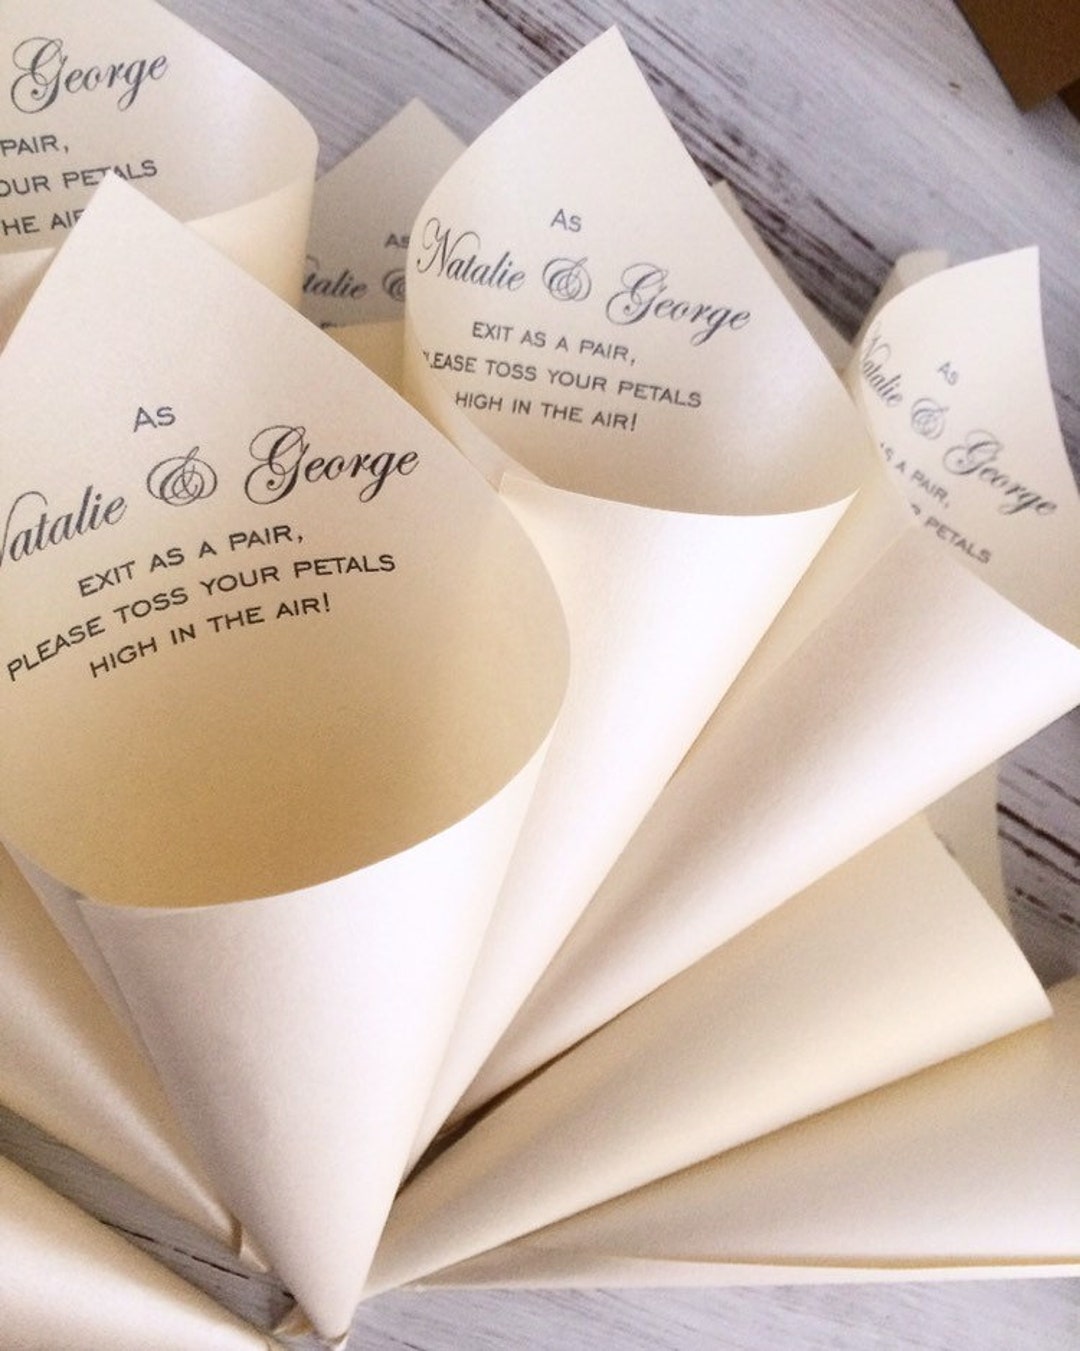 George
PAIR,
OUR PETALS
HE AIR
As
talie &
As
Natalie & George
EXIT AS A PAIR,
PLEASE TOSS YOUR PETALS
HIGH IN THE AIR!
As
Natalie & George
AS A PAIR,
PETALS
As
Natalie & George
EXIT AS A PAIR,
PLEASE TOSS YOUR PETALS
HIGH IN THE AIR!